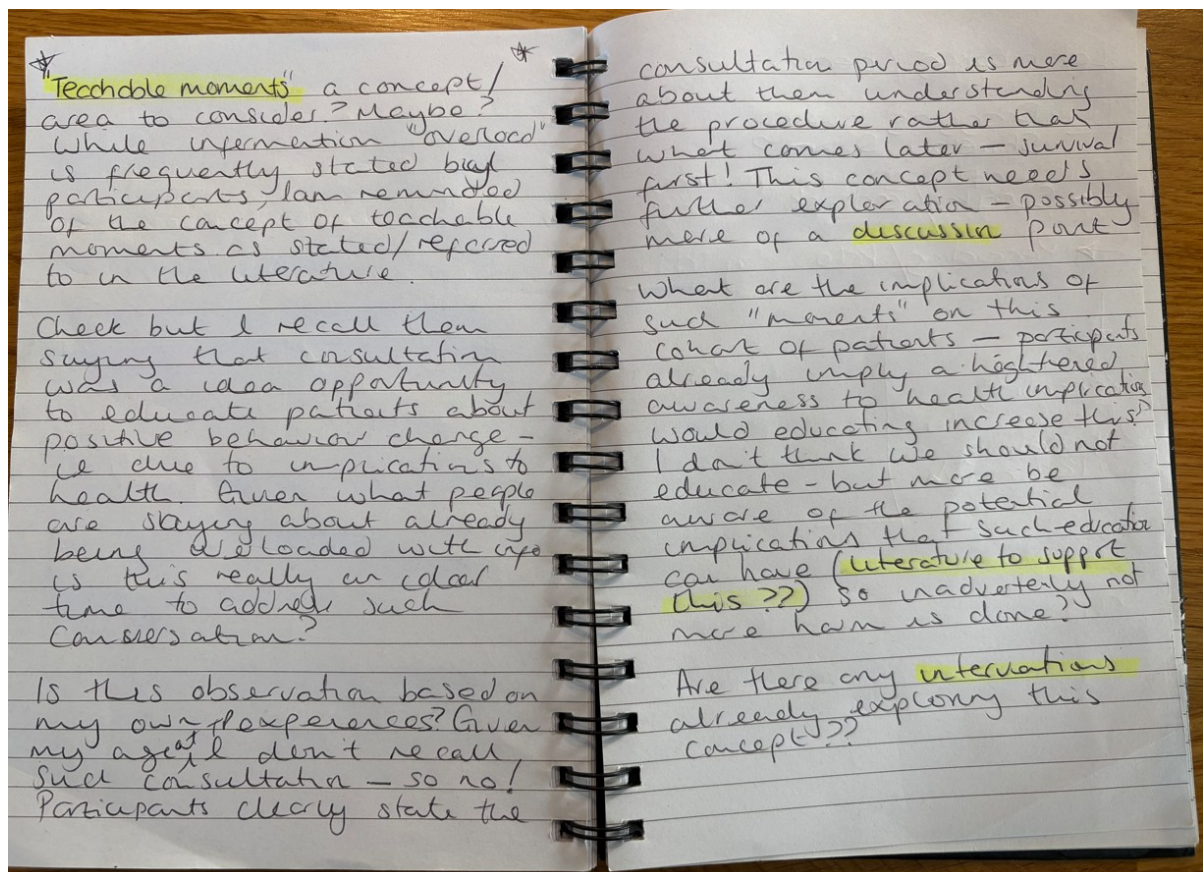 "Teachable moments" a concept/
area to consider? Maybe?
While information "overload"
is frequently stated by
participants, I am reminded
of the concept of teachable
moments as stated/referred
to in the literature.
Check but I recall them
saying that consultation
was a idea opportunity
to educate patients about
positive behaviour change -
ie due to implications to
health. Given what people
are saying about already
being overloaded with info
is this really an ideal
time to address such
conversation?
Is this observation based on
my own experiences? Given
my age at I don't recall
such consultation - so no!
Participants clearly state the
consultation period is more
about them understanding
the procedure rather that
what comes later - survival
first! This concept needs
further exploration - possibly
more of a discussion point
What are the implications of
such "moments" on this
cohort of patients - participants
already imply a hightered
awareness to health implication
would educating increase this?
I don't think we should not
educate - but more be
aware of the potential
implications that such education
can have (literature to support
this ??) so inadvertenly not
more harm is done?
Are there any interventions
already exploring this
concept??